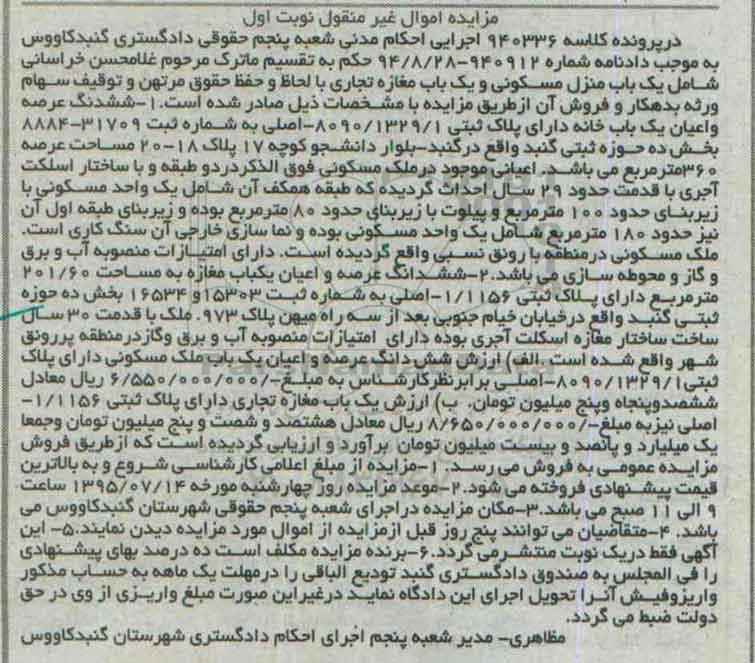 مزایده اموال غیر منقول نوبت اول
درپرونده کلاسه ۹۴۰۳۳۶ اجرایی احکام مدنی شعبه پنجم حقوقی دادگستری گنبدکاووس
به موجب دادنامه شماره ۹۴۰۹۱۲-۹۴/۸/۲۸ حکم به تقسیم ماترک مرحوم غلامحسن خراسانی
شامل یک باب منزل مسکونی و یک باب مغازه تجاری با لحاظ و حفظ حقوق مرتهن و توقیف سهام
ورثه بدهکار و فروش آن ازطریق مزایده با مشخصات ذیل صادر شده است.۱-ششدنگ عرصه
واعیان یک باب خانه دارای پلاک ثبتی ۸۰۹۰/۱۳۲۹/۱-اصلی به شماره ثبت ۳۱۷۰۹-۸۸۸۴
بخش ده حوزه ثبتی گنبد واقع درگنبد-بلوار دانشجو کوچه ۱۷ پلاک ۱۸-۲۰ مساحت عرصه
۳۶۰مترمربع می باشد. اعیانی موجود درملک مسکونی فوق الذکردردو طبقه و با ساختار اسلکت
آجری با قدمت حدود ۲۹ سال احداث گردیده که طبقه همکف آن شامل یک واحد مسکونی با
زیربنای حدود ۱۰۰ مترمربع و پیلوت با زیربنای حدود ۸۰ مترمربع بوده و زیربنای طبقه اول آن
نیز حدود ۱۸۰ مترمربع شامل یک واحد مسکونی بوده و نما سازی خارجی آن سنگ کاری است.
ملک مسکونی درمنطقه با رونق نسبی واقع گردیده است. دارای امتیازات منصوبه آب و برق
و گاز و محوطه سازی می باشد.۲-ششدانگ عرصه و اعیان یکباب مغازه به مساحت ۲۰۱/۶۰
مترمربع دارای پلاک ثبتی ۱/۱۱۵۶-اصلی به شماره ثبت ۱۵۳۰۳و ۱۶۵۳۴ بخش ده حوزه
ثبتی گنبد واقع درخیابان خیام جنوبی بعد از سه راه میهن پلاک ۹۷۳. ملک با قدمت ۳۰ سال
ساخت ساختار مغازه اسکلت آجری بوده دارای امتیازات منصوبه آب و برق وگازدرمنطقه پررونق
شهر واقع شده است. الف) ارزش شش دانگ عرصه و اعیان یک باب ملک مسکونی دارای پلاک
ثبتی۸۰۹۰/۱۳۲۹/۱-اصلی برابرنظرکارشناس به مبلغ-/۶/۵۵۰/۰۰۰/۰۰۰ ریال معادل
ششصدوپنجاه وپنج میلیون تومان. ب) ارزش یک باب مغازه تجاری دارای پلاک ثبتی ۱/۱۱۵۶-
اصلی نیزبه مبلغ-/۸/۶۵۰/۰۰۰/۰۰۰ ریال معادل هشتصد و شصت و پنج میلیون تومان وجمعا
یک میلیارد و پانصد و بیست میلیون تومان برآورد و ارزیابی گردیده است که ازطریق فروش
مزایده عمومی به فروش می رسد. ۱-مزایده از مبلغ اعلامی کارشناسی شروع و به بالاترین
قیمت پیشنهادی فروخته می شود.۲-موعد مزایده روز چهارشنبه مورخه ۱۳۹۵/۰۷/۱۴ ساعت
۹ الی ۱۱ صبح می باشد.۳-مکان مزایده دراجرای شعبه پنجم حقوقی شهرستان گنبدکاووس می
باشد. ۴-متقاضیان می توانند پنج روز قبل ازمزایده از اموال مورد مزایده دیدن نمایند.۵- این
آگهی فقط دریک نوبت منتشرمی گردد.۶-برنده مزایده مکلف است ده درصد بهای پیشنهادی
را فی المجلس به صندوق دادگستری گنبد تودیع الباقی را درمهلت یک ماهه به حساب مذکور
واریزوفیش آنرا تحویل اجرای این دادگاه نماید درغیراین صورت مبلغ واریزی از وی در حق
دولت ضبط می گردد.
مظاهری- مدیر شعبه پنجم اجرای احکام دادگستری شهرستان گنبدکاووس